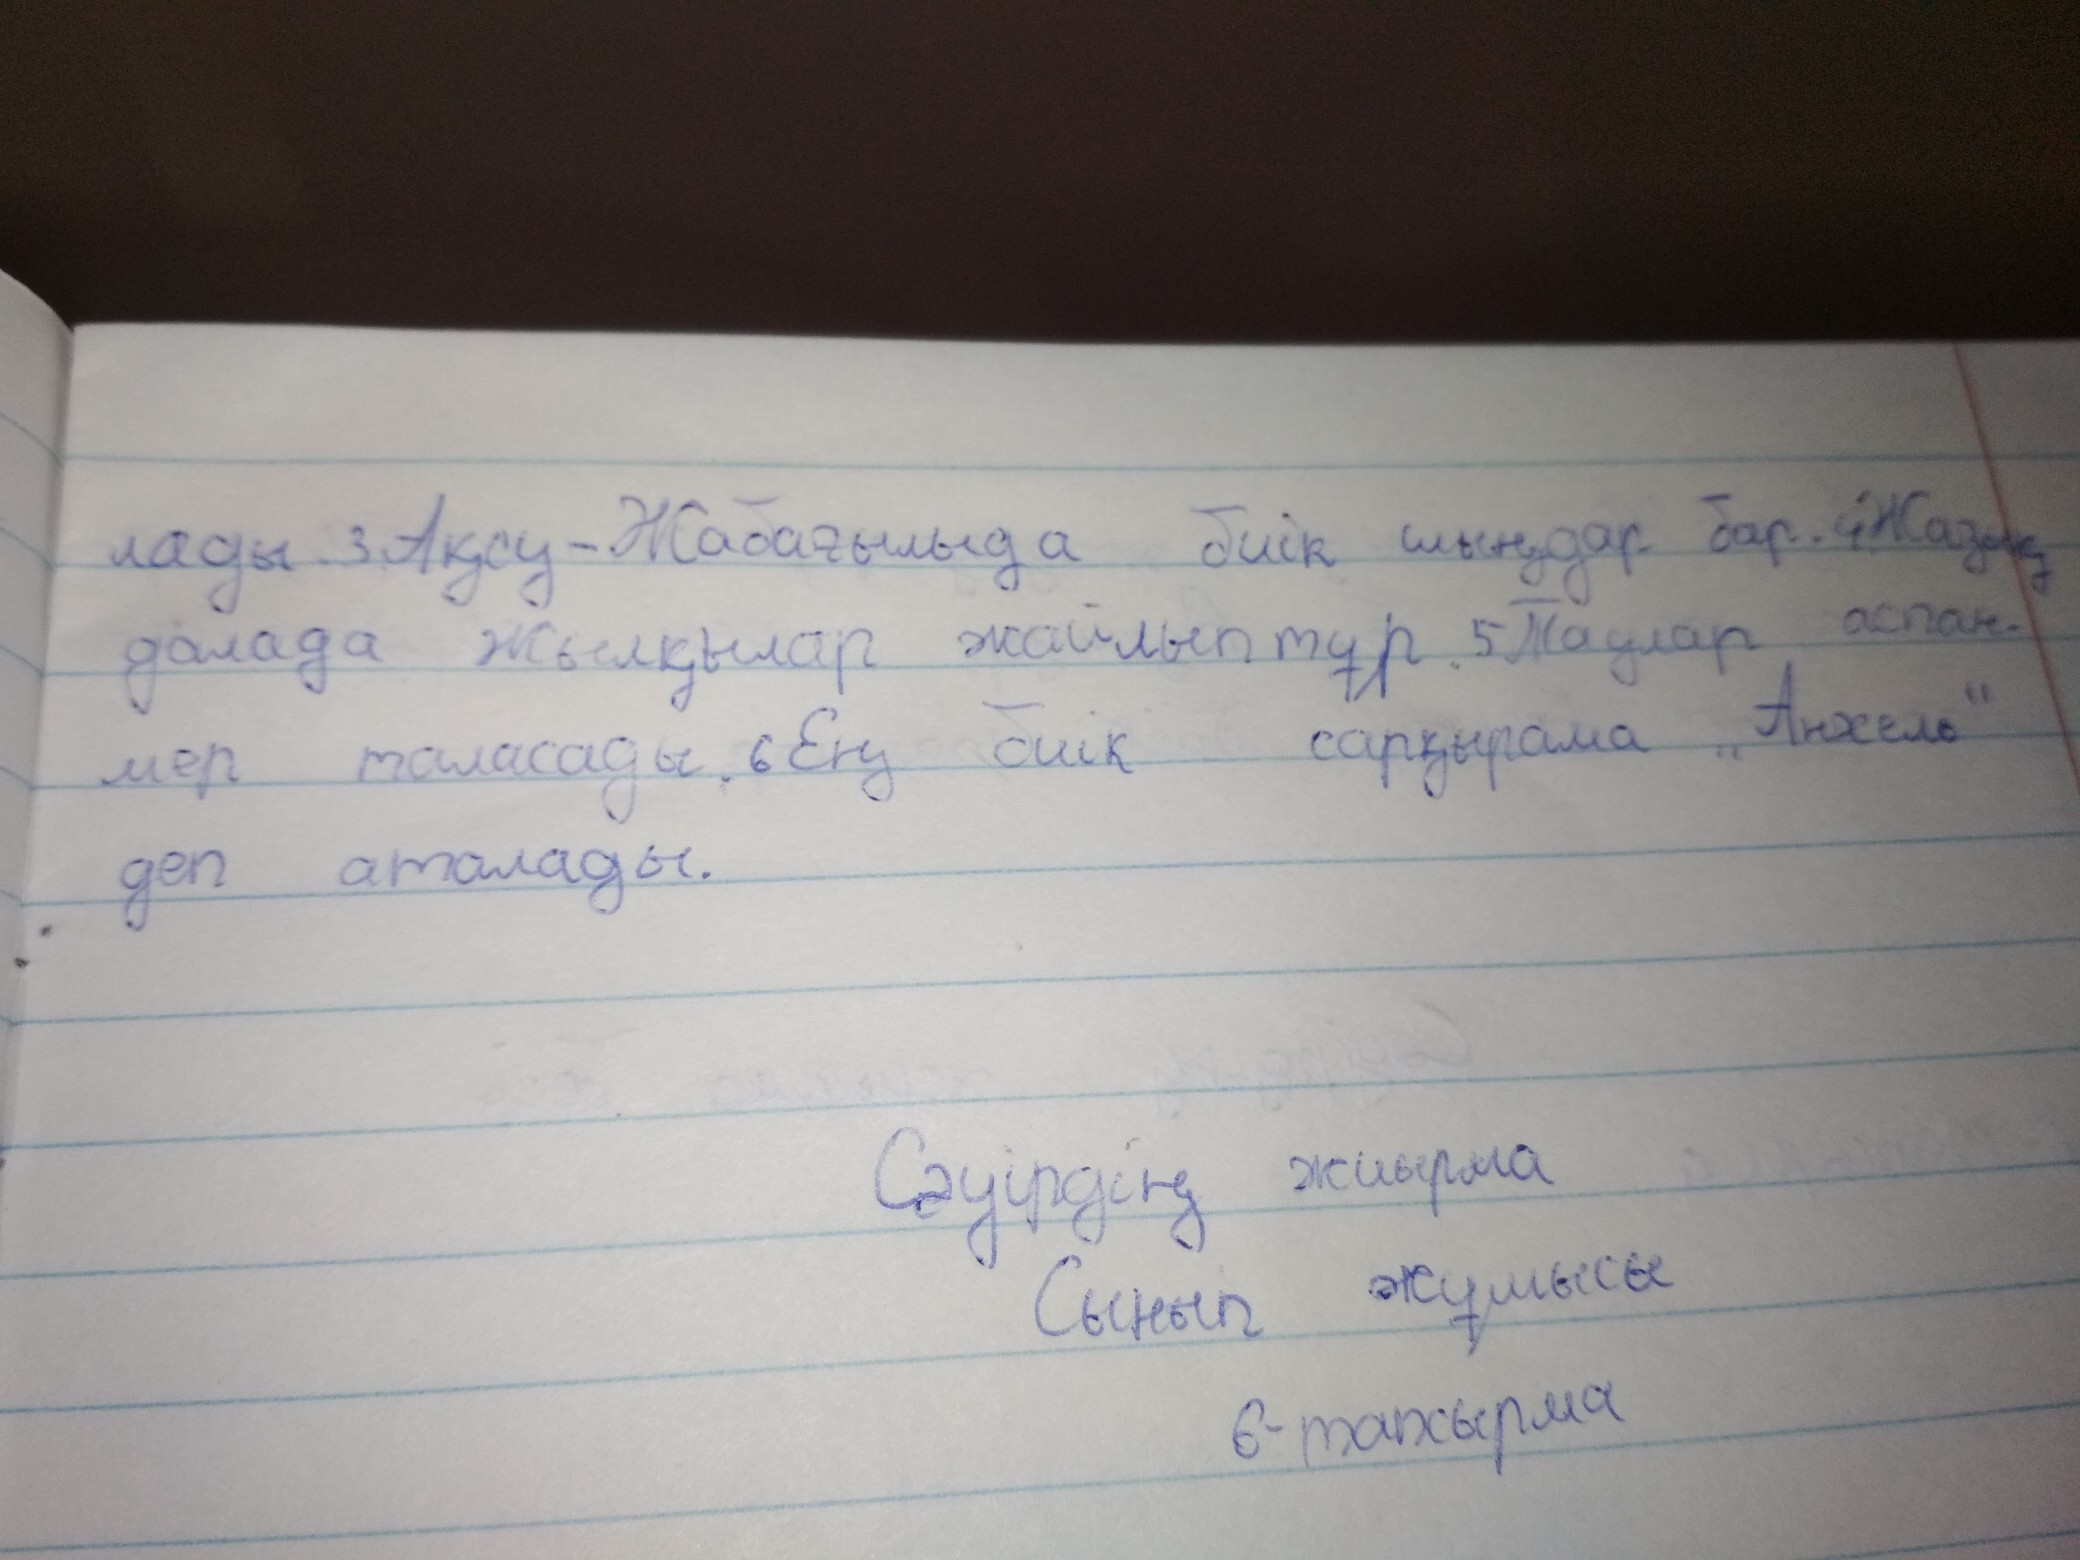 лады 3 Ақсу-Жабағылыда биік шыңдар бар. 4 Жазық
далада жылқылар жайлып тұр. 5 Таулар аспан-
мер таласады. 6 Ең биік сарқырама „Анхель"
деп аталады.
Сәуірдің жиырма
Сынып жұмысы
6-тапсырма